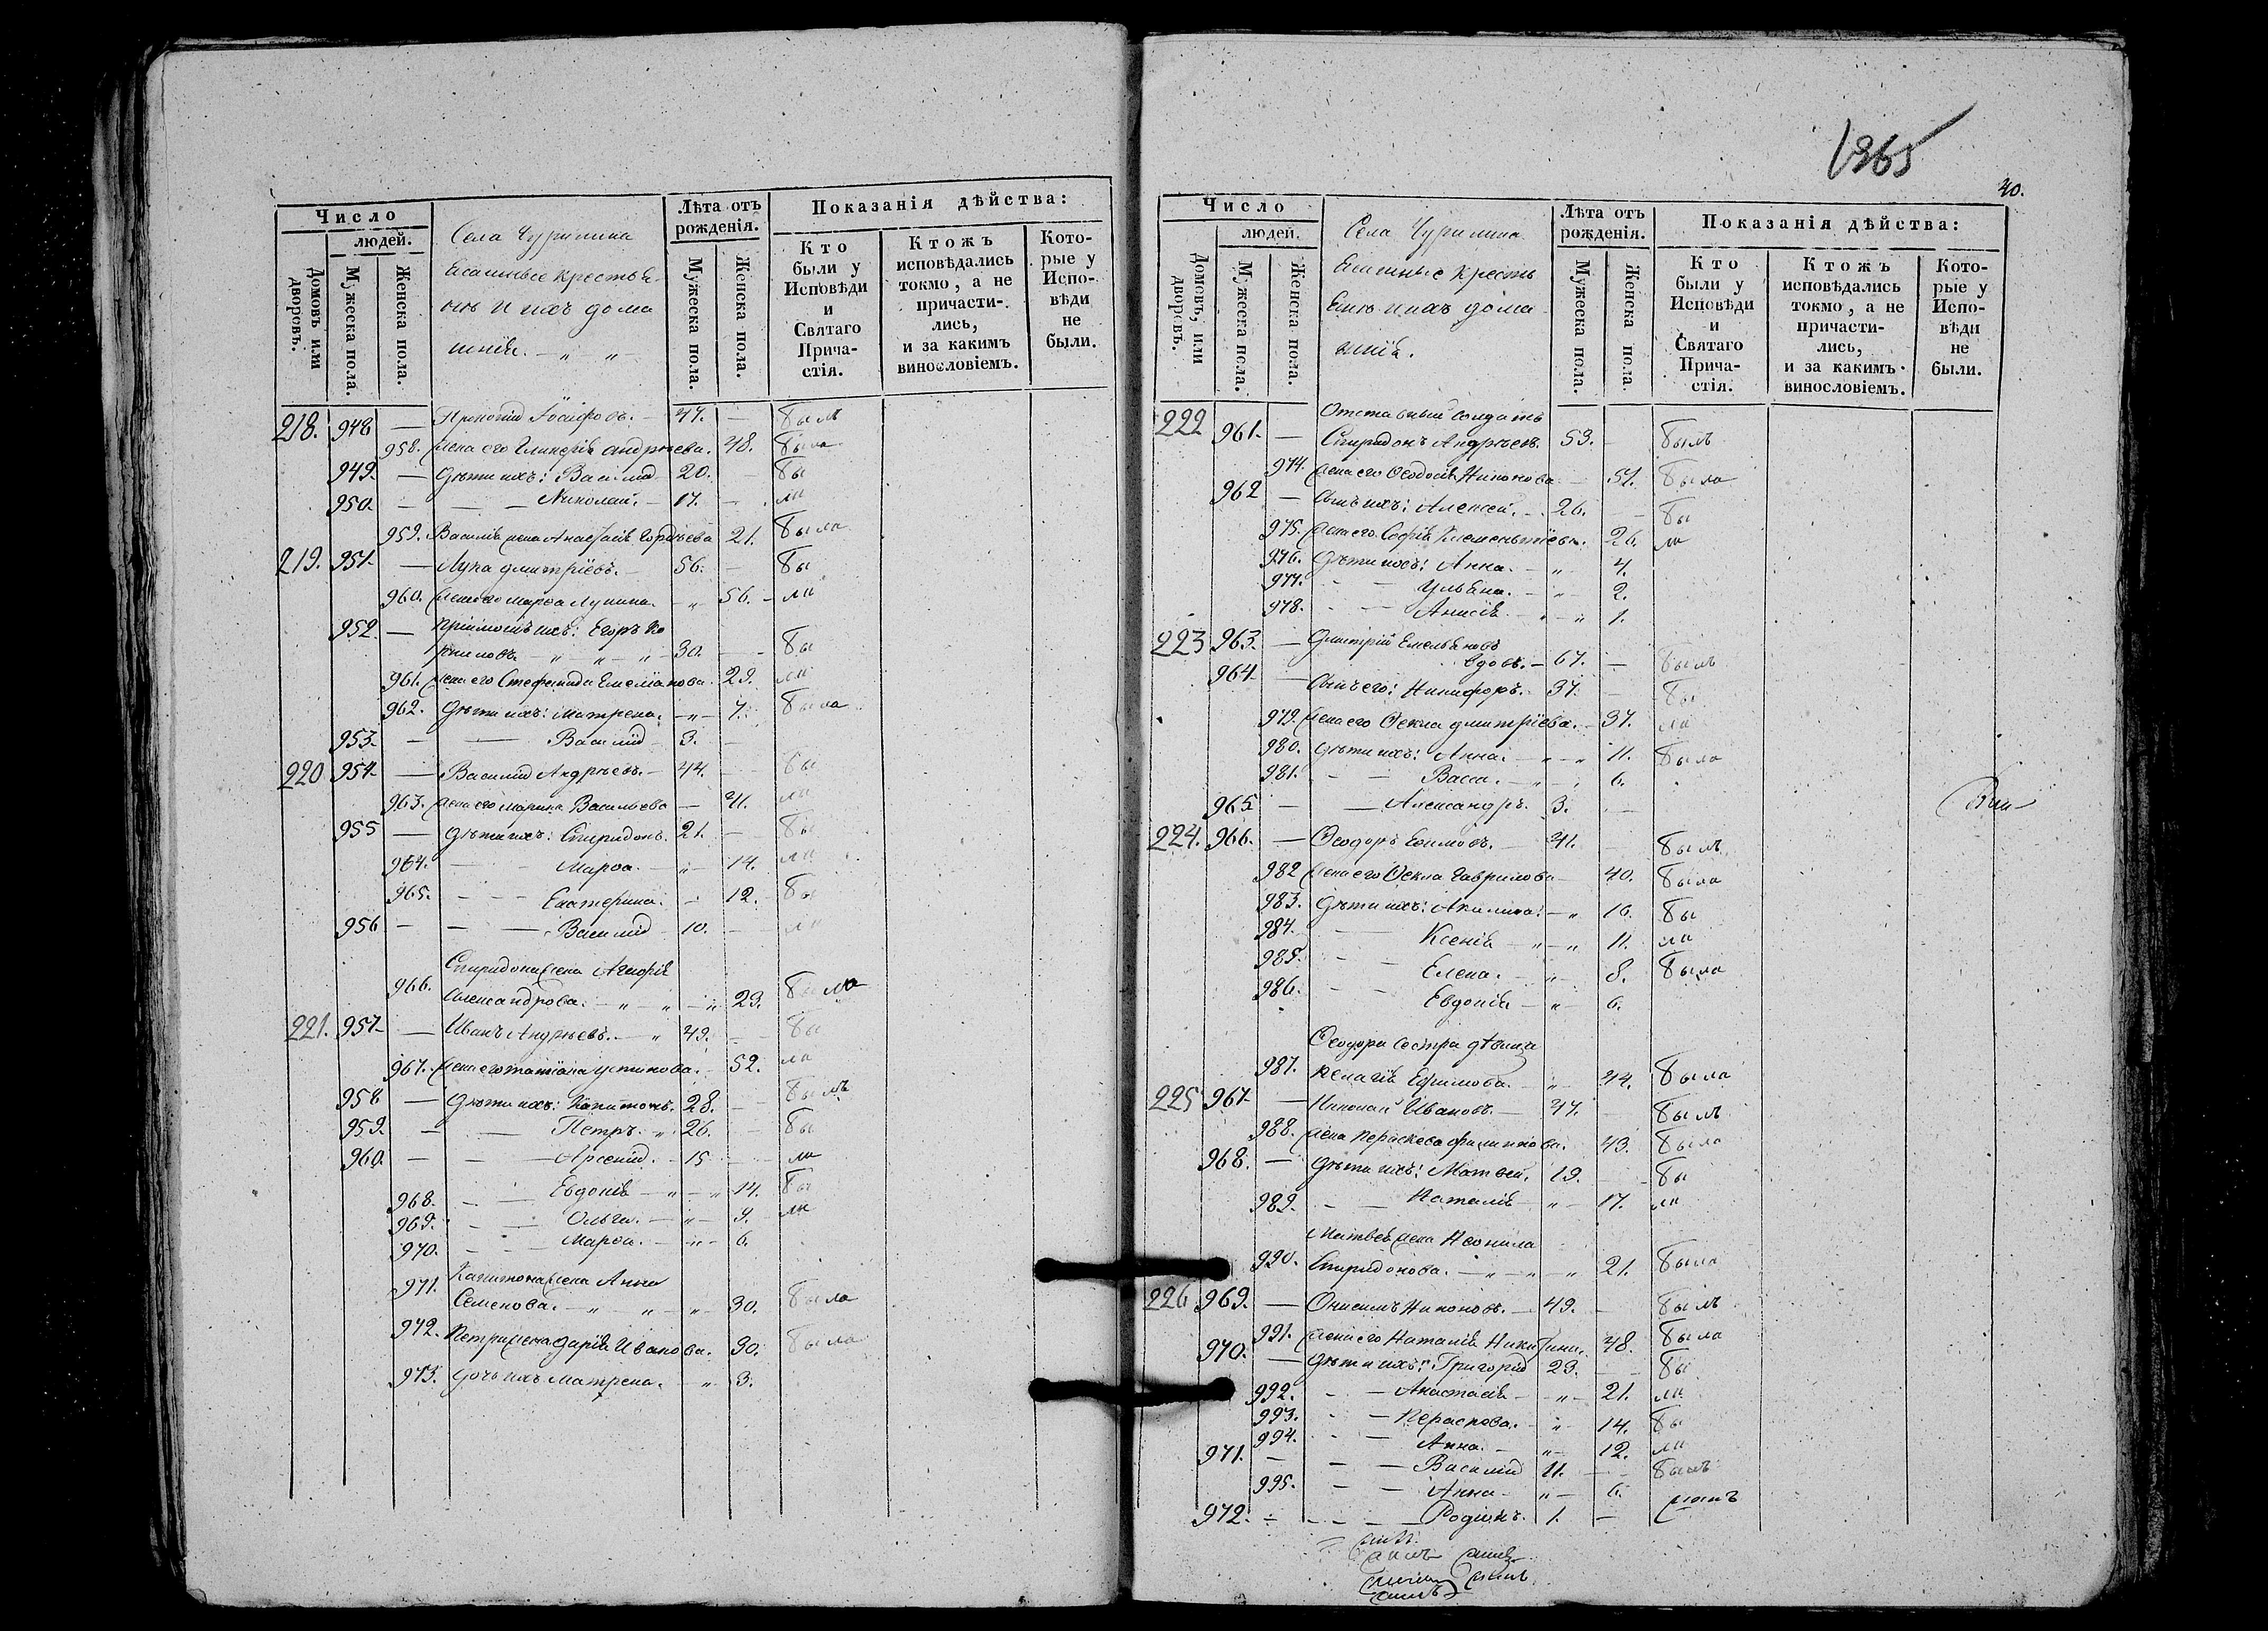 Число
людей.
Домовъ или дворовъ.
Мужеска пола.
Женска пола.
Села Чурилина
Ясашные крестья
не и ихъ дома
шнія. — „ „
Лѣта отъ рожденія.
Мужеска пола.
Женска пола.
Показанія дѣйства:
Кто были у Исповѣди и Святаго Прича-стія.
Ктожъ исповѣдались токмо, а не причасти-лись, и за какимъ винословіемъ.
Кото-рые у Испо-вѣди не были.
218. 948 — Прокопій Іосифовъ. — 47. — былъ
958. жена его Гликерія Андреева. 48. была
949. — дѣти ихъ: Василій 20. — бы
950. — — Николай. — 17. — ли
959. Василія жена Анастасія Гордѣева 21. была
219. 951. — Лука Дмитріевъ. — 56. — бы
960. жена его Марѳа Лукина. — „ — 56. — ли
952. — пріимышъ ихъ: Егоръ Ко
рниловъ. — „ — „ — „ — 30. — бы
961. жена его Стефанида Емеліанова. 29. ли
962. дѣти ихъ: Матрена. — „ — 7. была
953. — — Василій 3. —
220 954. — Василій Андреевъ. — 44. — бы
963. жена его Марина Васильева — 41. ли
955 — дѣти ихъ: Спиридонъ. 21. — бы
964. — — Марѳа. — „ — 14. ли
965. — — Екатерина. — 12. бы
956 — — Василій 10. — ли
Спиридона жена Агафія
966. Александрова. — „ — „ — „ 23. была
221. 957. — Иванъ Андреевъ. — „ 49. — бы
967. жена его Татіана Устинова. — 52. ли
958 — дѣти ихъ: Капитонъ. 28. — былъ
959. — — Петръ. „ 26. — бы
960. — — Арсеній. — 15 — ли
968. — — Евдокія — „ — „ 14. бы
969. — — Ольга. — „ — 9. ли
970. — — Марѳа. — „ — 6.
Капитона жена Анна
971. Семенова. — „ — „ — „ — 30. была
972. Петра жена Дарія Иванова. 30. была
973. дочь ихъ Матрена. — „ 3.
1865
40.
Число
людей.
Домовъ, или дворовъ.
Мужеска пола.
Женска пола.
Села Чурилина
Ясашные кресть
яне и ихъ дома
шнія.
Лѣта отъ рожденія.
Мужеска пола.
Женска пола.
Показанія дѣйства:
Кто были у Исповѣди и Святаго Прича-стія.
Ктожъ исповѣдались токмо, а не причасти-лись, и за какимъ винословіемъ.
Кото-рые у Испо-вѣди не были.
222 Отставный солдатъ
961. — Спиридонъ Андреевъ. 53. — былъ
974. жена его Ѳеодосія Никонова — 51. была
962 — сынъ ихъ: Алексей. — 26. — бы
975. жена его Софія Клементіева. 26. ли
976. дѣти ихъ: Анна. — „ — 4.
977. — — Ульяна. — „ — 2.
978. — — Анисія. — „ 1.
223 963. — Дмитрій Емельяновъ
вдовъ. — 67. — былъ
964. — сынъ его: Никифоръ. 37. — бы
979. жена его Ѳекла Дмитріева. — 37. ли
980. дѣти ихъ: Анна. — „ — „ 11. была
981. — — Васса. — „ — 6.
965 — — Александръ. 3. —
224. 966. — Ѳеодоръ Ефимовъ. — 41. — былъ
982 жена его Ѳекла Гаврилова — 40. была
983. дѣти ихъ: Акилина. — „ 16. бы
984. — — Ксенія — „ — „ 11. ли
985. — — Елена. — „ — 8. была
986. — — Евдокія — „ — 6.
Ѳеодора сестра дѣвица
987. Пелагія Ефимова. — „ — 44. была
225 967 — Николай Ивановъ. — 47. — былъ
988. жена Параскева Филиппова. 43. была
968. — дѣти ихъ: Матвей. 19. — бы
989. — — Наталія — „ — 17. ли
Матвея жена Неонила
990. Спиридонова. — „ — „ — „ 21. была
226 969. — Онисимъ Никоновъ. — 49. — былъ
991. жена его Наталія Никитина. 48. была
970. — дѣти ихъ: Григорій 23. — бы
992. — — Анастасія — „ — 21. ли
993. — — Параскова. — „ — 14. бы
994. — — Анна. — „ — 12. ли
971. — — Василій 11. — былъ
995. — — Анна — „ — 6.
972. — — Родіонъ. 1. —